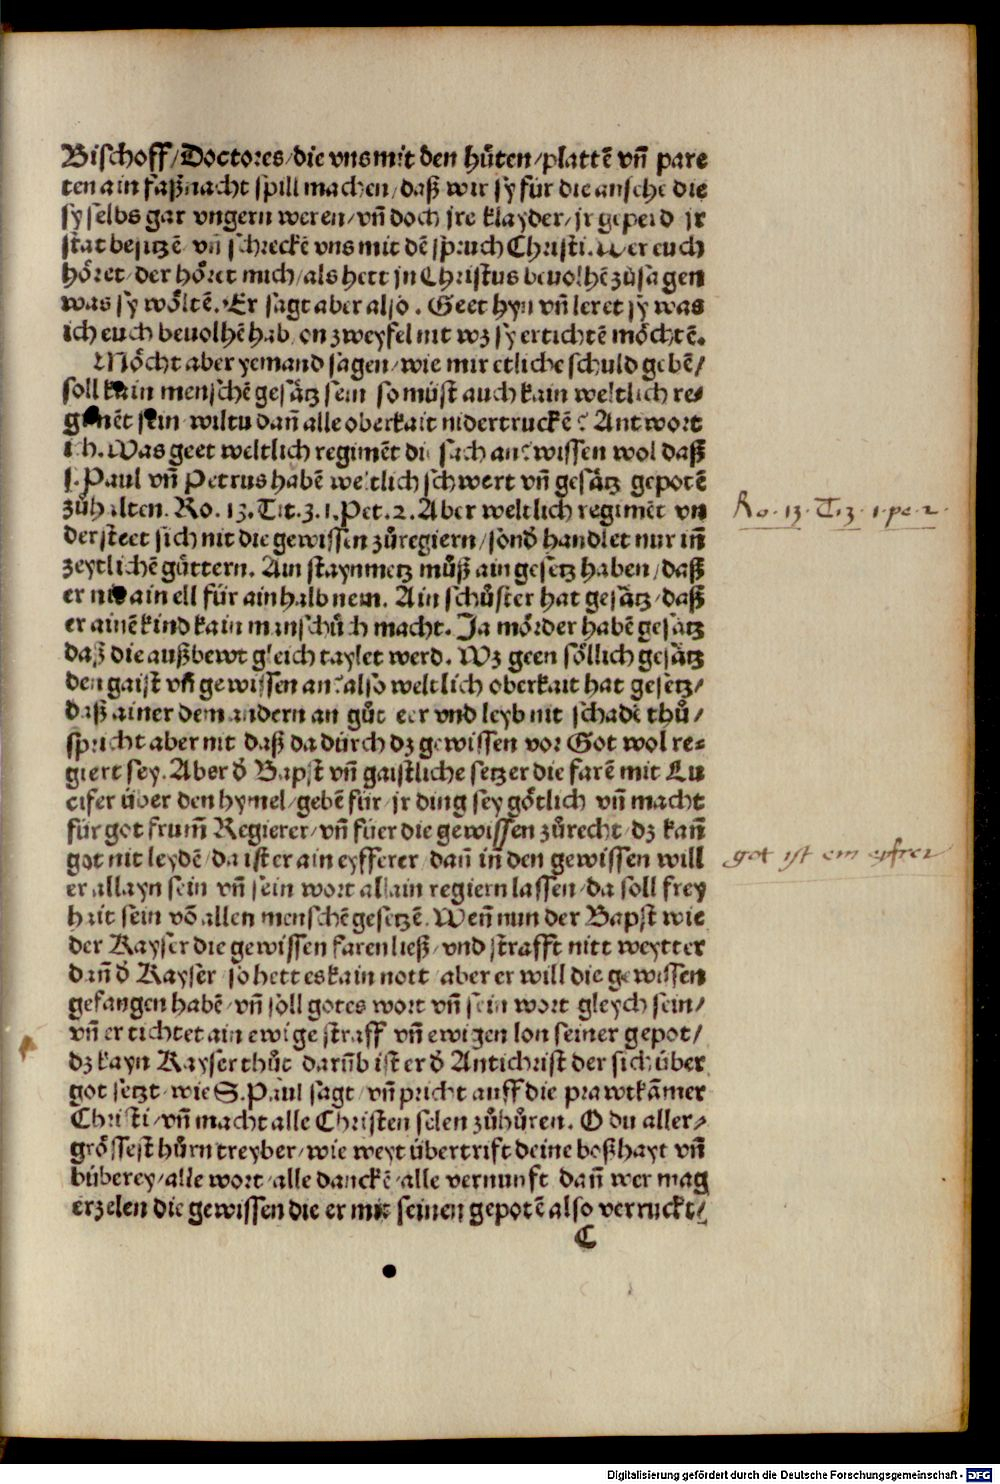 Bischoff/Doctores/die vns mit den hůten/plattē vn̄ pare
ten ain faßnacht spill machen/daß wir sy für die ansehe die
sy selbs gar vngern weren/vn̄ doch jre klayder/jr geperd jr
stat besitzē vn̄ schreckē vns mit dē spruch Christi. Wer euch
höret/der höret mich/als hett jn Christus beuolhē zůsagen
was sy wöltē. Er sagt aber also. Geet hyn vn̄ leret sy was
ich euch beuolhē hab on zweyfel nit wz sy ertichtē möchtē.
Möcht aber yemand sagen/wie mir etliche schuld gebē/
soll kain menschē gesätz sein so můst auch kain weltlich re-
gimēt sein wiltu dan̄ alle oberkait nidertruckē? Antwort
ich. Was geet weltlich regimēt die sach an? wissen wol daß
s. Paul vn̄ Petrus habē weltlich schwert vn̄ gesätz gepotē
zůhalten. Ro. 13. Tit. 3. 1. Pet. 2. Aber weltlich regimēt vn
dersteet sich nit die gewissen zůregiern/sond̄ handlet nur in̄
zeytlichē gůttern. Ain staynmetz můß ain gesetz haben/daß
er nit ain ell für ain halb nem. Ain schůster hat gesätz/daß
er ainē kind kain manschůch macht. Ja mörder habē gesätz
daß die außbewt gleich taylet werd. Wz geen söllich gesätz
den gaist vn̄ gewissen an? also weltlich oberkait hat gesetz/
daß ainer dem andern an gůt eer vnd leyb nit schadē thů/
spricht aber nit daß da durch dz gewissen vor Got wol re-
giert sey. Aber d̄ Bapst vn̄ gaistliche setzer die farē mit Lu
cifer über den hymel/gebē für/jr ding sey götlich vn̄ macht
für got frum̄ Regierer/vn̄ füer die gewissen zůrecht/dz kan̄
got nit leydē/da ist er ain eyfferer/dan̄ in̄ den gewissen will
er allayn sein vn̄ sein wort allain regiern lassen/da soll frey
hait sein vō allen menschē gesetzē. Wen̄ nun der Bapst wie
der Kayser die gewissen faren ließ/vnd strafft nitt weytter
dan̄ d̄ Kayser so hett es kain nott aber er will die gewissen
gefangen habē/vn̄ söll gotes wort vn̄ sein wort gleych sein/
vn̄ er tichtet ain ewige straff vn̄ ewigen lon seiner gepot/
dz kayn Kayser thůt darūb ist er d̄ Antichrist der sich über
got setzt/wie S. Paul sagt/vn̄ pricht auff die prawtkām̄er
Christi/vn̄ macht alle Christen selen zůhůren. O du aller-
grössest hůrntreyber/wie weyt übertrift deine boßhayt vn̄
büberey/alle wort/alle danckē/alle vernunft dan̄ wer mag
erzelen die gewissen die er mit seinen gepotē also verruckt/
C
Ro. 13. T. 3. 1. pe. 2.
got ist ein eyfrer
Digitalisierung gefördert durch die Deutsche Forschungsgemeinschaft - DFG